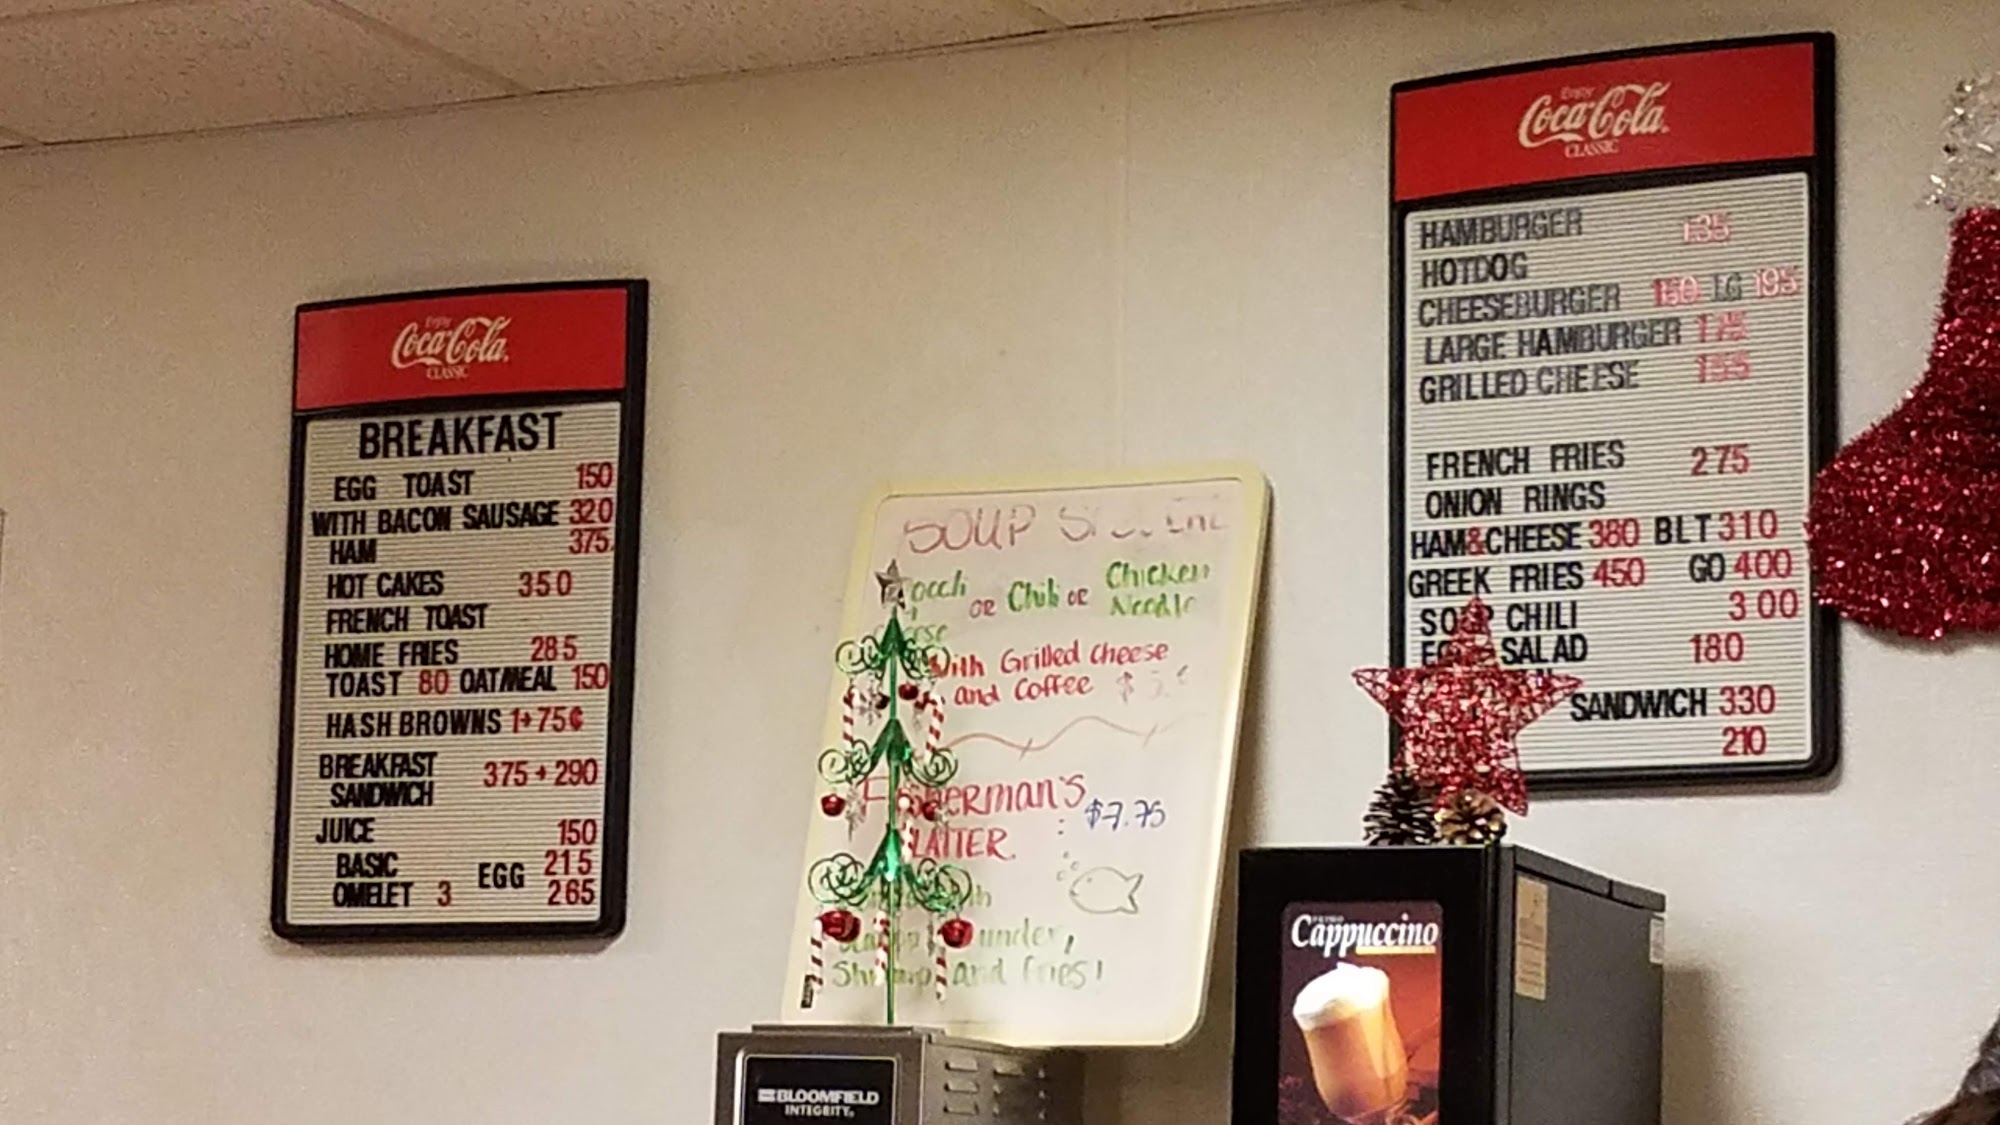 Enjoy
Coca-Cola
CLASSIC
BREAKFAST
EGG TOAST 150
WITH BACON SAUSAGE 320
HAM 375
HOT CAKES 350
FRENCH TOAST
HOME FRIES 285
TOAST 80 OATMEAL 150
HASH BROWNS 1+75¢
BREAKFAST 375+290
SANDWICH
JUICE 150
BASIC EGG 215
OMELET 3 265
SOUP
or Chili or Chicken
Noodle
With Grilled cheese
and Coffee
Fisherman's
$7.75
Shrimp and fries!
BLOOMFIELD
INTEGRITY
Cappuccino
Enjoy
Coca-Cola
CLASSIC
HAMBURGER 135
HOTDOG
CHEESEBURGER 150 LG 195
LARGE HAMBURGER 175
GRILLED CHEESE 155
FRENCH FRIES 275
ONION RINGS
HAM&CHEESE 380 BLT 310
GREEK FRIES 450 GO 400
SOUP CHILI 300
SALAD 180
SANDWICH 330
210